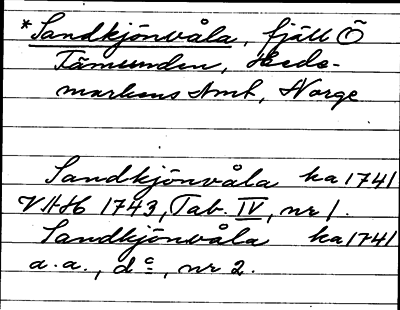 *Sandkjönvåla, fjäll Ö
Tämunden, Hede-
markens Amt, Norge
Sandkjönvåla ka 1741
VHH 1743, Tab. IV, nr 1.
Sandkjönvåla ka 1741
a.a., d:o, nr 2.